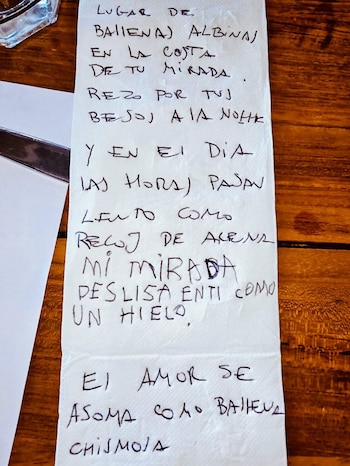 LUGAR DE
BALLENAS ALBINAS
EN LA COSTA
DE TU MIRADA.
REZO POR TUS
BESOS A LA NOCHE
Y EN EL DIA
LAS HORAS PASAN
LENTO COMO
RELOJ DE ARENA
MI MIRADA
DESLISA EN TI COMO
UN HIELO.
El AMOR SE
ASOMA COMO BALLENA
CHISMOSA